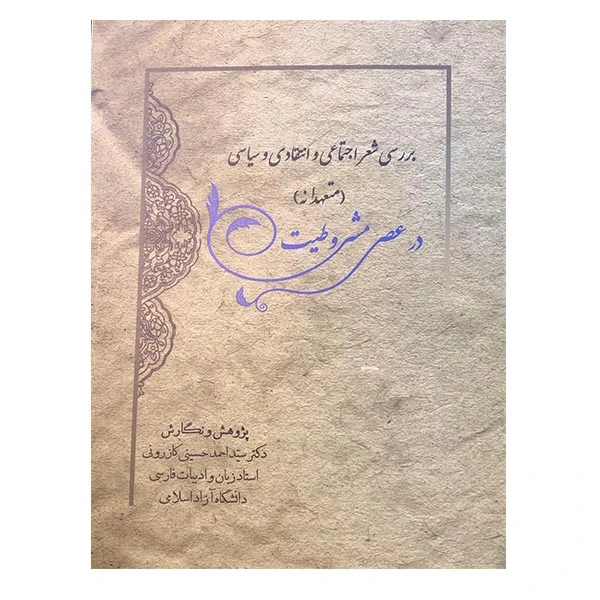 بررسی شعر اجتماعی و انتقادی و سیاسی
(متعهدانه)
در عصر مشروطیت
پژوهش و نگارش
دکتر سیّد احمد حسینی کازرونی
استاد زبان و ادبیات فارسی
دانشگاه آزاد اسلامی